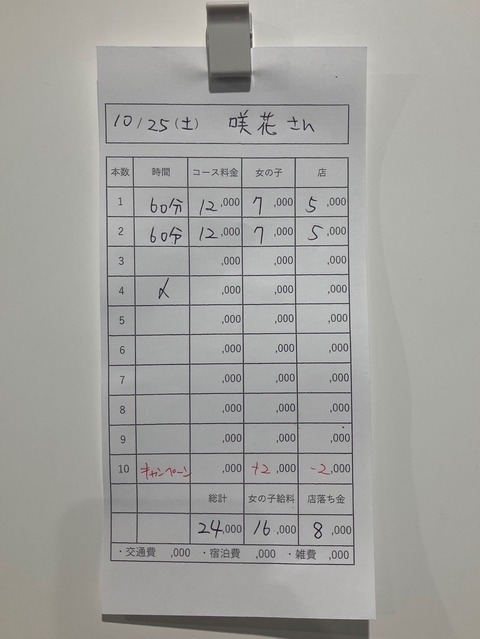 10/25(土) 咲花さん
本数 時間 コース料金 女の子 店
1 60分 12,000 7,000 5,000
2 60分 12,000 7,000 5,000
3 ,000 ,000 ,000
4 〆 ,000 ,000 ,000
5 ,000 ,000 ,000
6 ,000 ,000 ,000
7 ,000 ,000 ,000
8 ,000 ,000 ,000
9 ,000 ,000 ,000
10 キャンペーン ,000 +2,000 -2,000
総計 女の子給料 店落ち金
24,000 16,000 8,000
・交通費 ,000 ・宿泊費 ,000 ・雑費 ,000